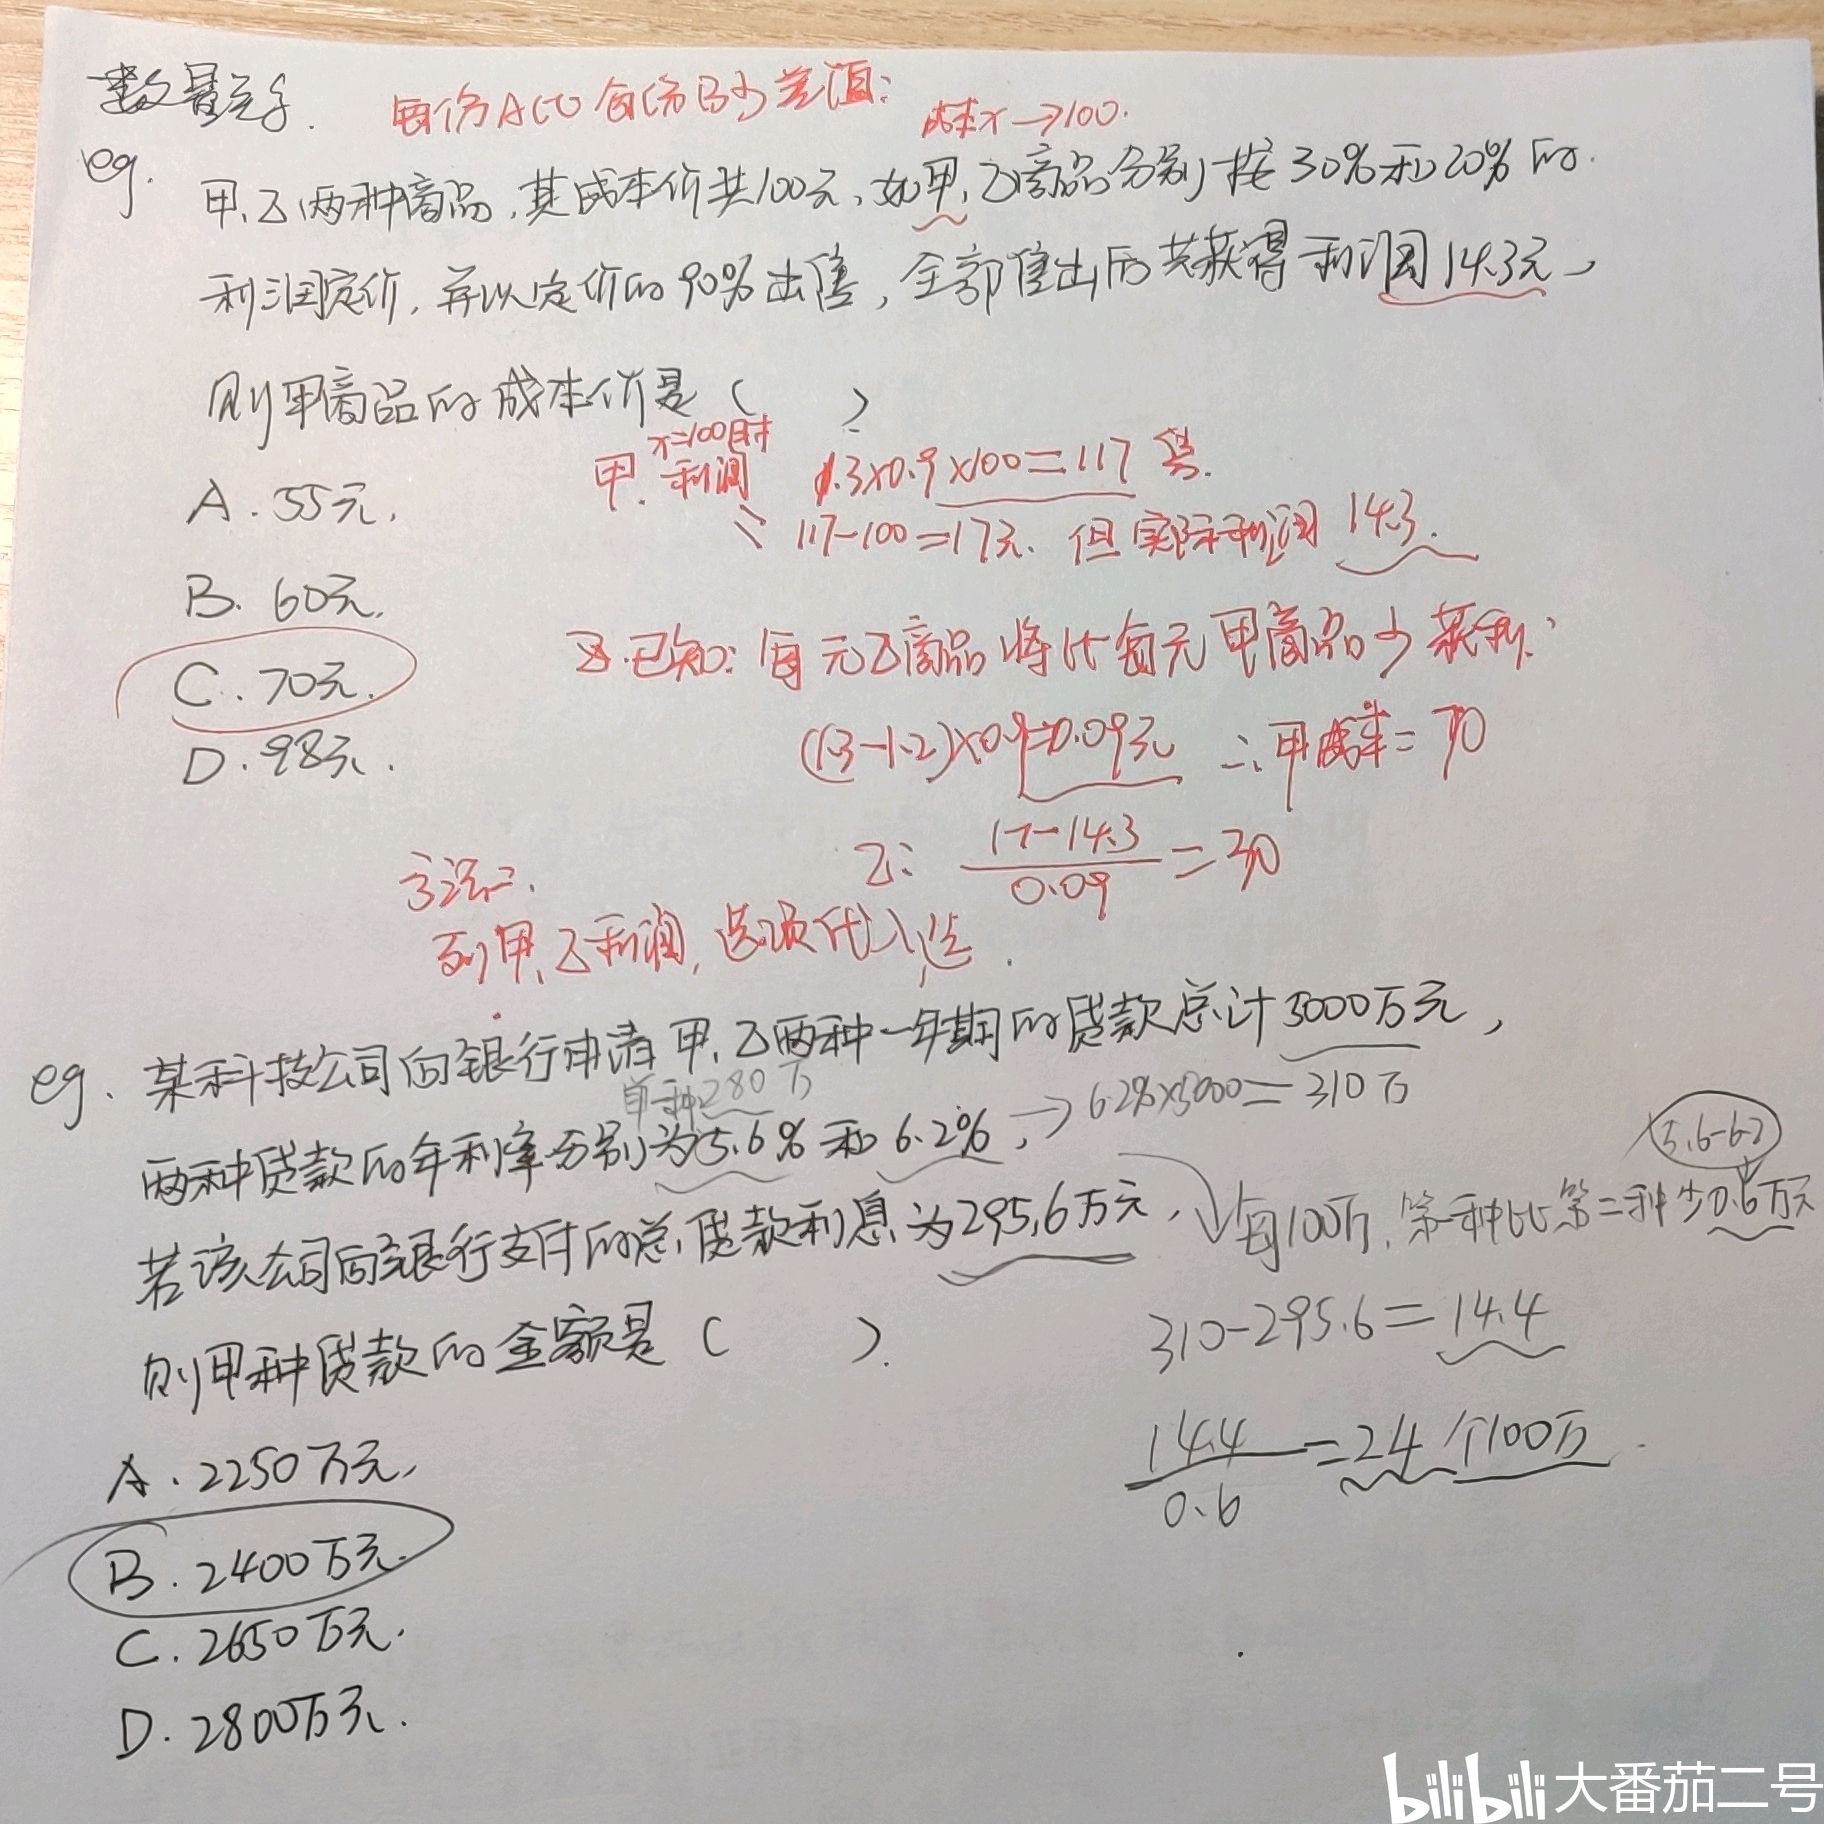 数量关系.
每份A比每份B少差值:
成本x→100.
eg.
甲、乙两种商品,其成本价共100元,如甲、乙商品分别按30%和20%的
利润定价,并以定价的90%出售,全部售出后共获得利润14.3元,
则甲商品的成本价是( )
A.55元.
B.60元.
C.70元.
D.98元.
x=100时
甲.利润 1.3×0.9×100=117
117-100=17元.但实际利润14.3.
又已知:每元乙商品将比每元甲商品少获利:
(1.3-1.2)×0.9=0.09元 ∴甲成本=70
乙: 17-14.3 / 0.09 =30
方法二.
列甲、乙利润,选项代入选.
eg.某科技公司向银行申请甲、乙两种一年期的贷款总计5000万元,
单一种280万
两种贷款的年利率分别为5.6%和6.2%,→6.2%×5000=310万
5.6-6.2
若该公司向银行支付的总贷款利息为295.6万元,
每100万,第一种比第二种少0.6万元
则甲种贷款的金额是( ).
310-295.6=14.4
14.4 / 0.6 =24个100万.
A.2250万元.
B.2400万元.
C.2650万元.
D.2800万元.
bilibili 大番茄二号